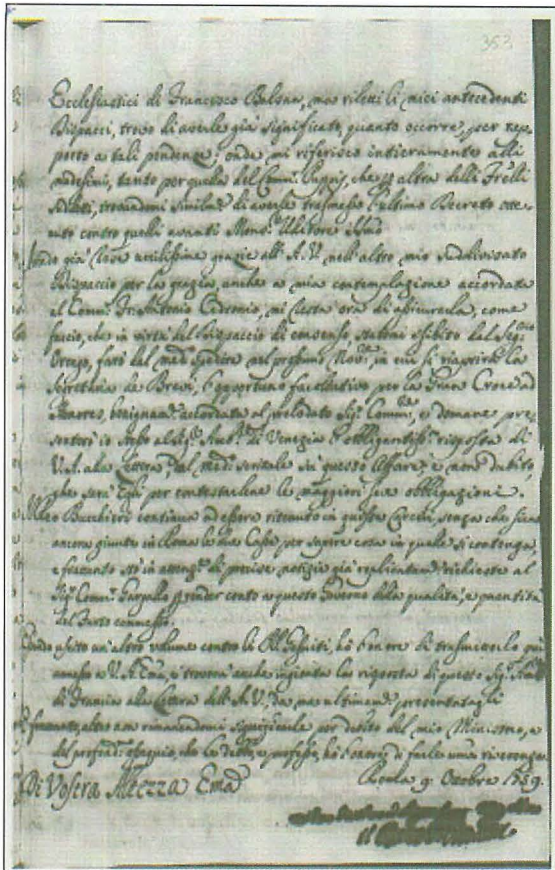 353
Ecclesiastici di Francesco Balsan, ma riletti li miei antecedenti
Dispacci, trovo di averle già significato, quanto occorre, per rap-
porto a tali pendenze; onde mi riferisco intieramente alli
medesimi, tanto per quella del Comm.
trovandomi di averle trasmesso l'ultimo Decreto otte-
nuto contro quelli avanti Mons.
già rese umilissime grazie all' A.V. nell'altro mio
Dispaccio per la grazia, anche a mia contemplazione accordata
al Comm. Fr. Antonio Cedronio, mi resta ora di assicurarla, come
faccio, che in virtù del Dispaccio di consenso, esibito dal Sig.
farò del med. spedire nel prossimo Nov., in cui si riaprirà la
Segretaria de Brevi, l'opportuno facoltativo per la Gran Croce ad
Honores, benignam. accordata al prelodato Sig. Comm., e domane pre-
senterò io stesso al Sig. Amb. di Venezia l'obbligantiss. risposta di
V.A. alla Lettera, dal med. scrittale su questo Affare, e non dubito,
che sarà Egli per contestarlene le maggiori sue obbligazioni.
Bucchiero continua ad essere ritenuto in queste Carceri, senza che siano
ancora giunte in Roma le due Casse per sapere cosa in quelle si contenga,
e frattanto sto in attenz. di precise notizie già replicatam. richieste al
Sig. Comm. Gargallo render conto a questo Governo della qualità, e quantità
del Furto commesso.
uscito un'altro volume contro li PP. Gesuiti, hò l'onore di trasmetterlo qui
annesso a V.A. Ema, e troverà anche ingiunta la risposta di questo Sig. Amb.
di Francia alla Lettera dell' A.V., da me ultimam. presentatagli
altro non rimanendomi significarle per debito del mio Ministero, e
del profond. ossequio, che le debbo, e professo, hò l'onore di farle umil. riverenza
Di Vostra Altezza Ema
Roma 9 Ottobre 1759.